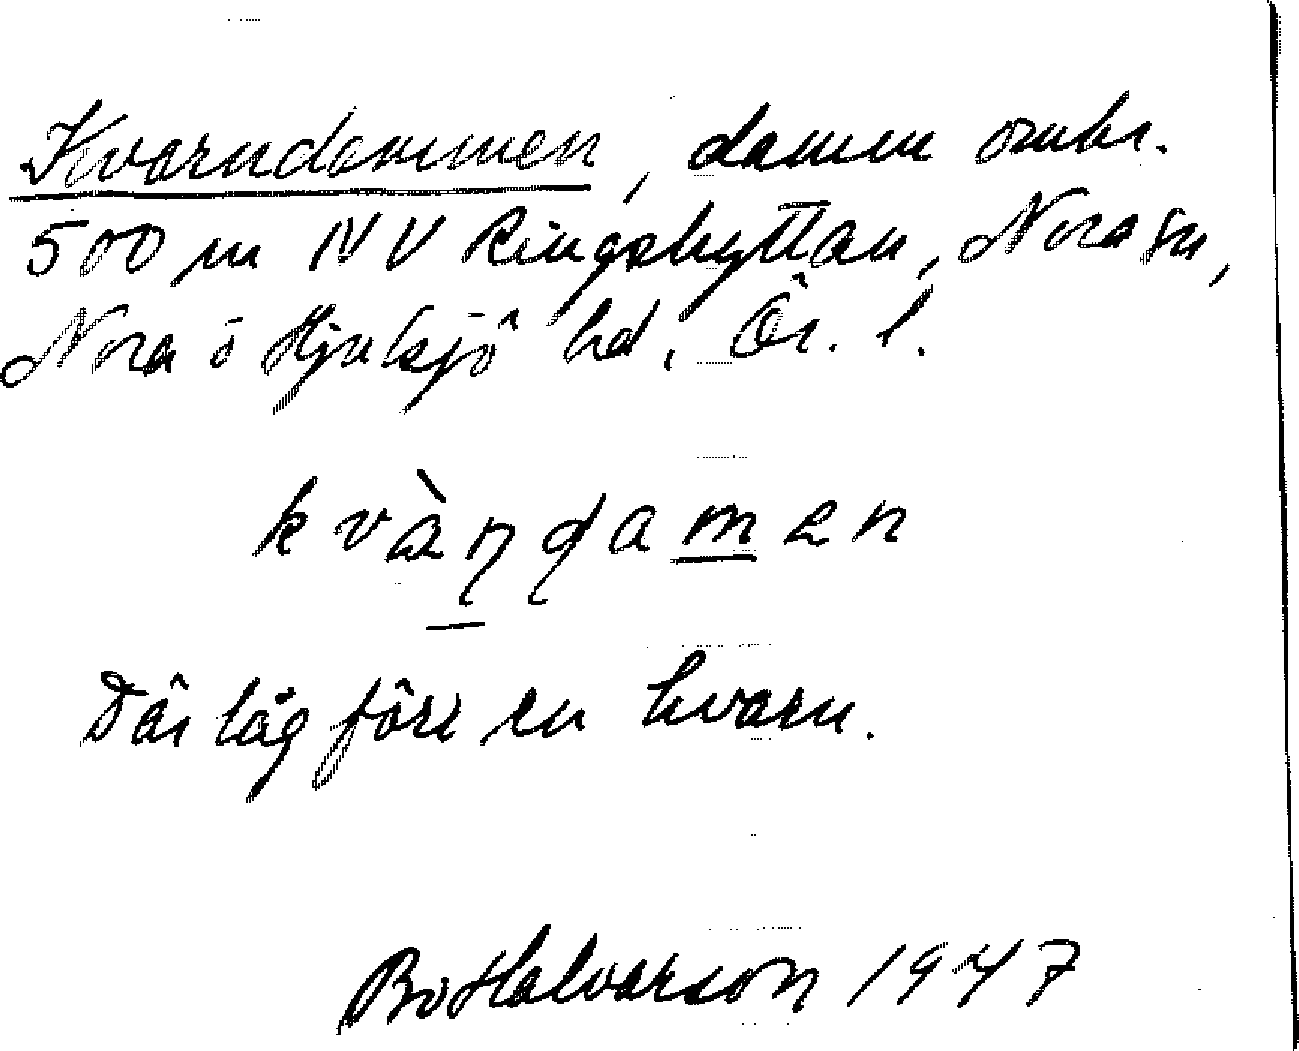 Kvarndammen, damm omkr.
500 m NV Ringshyttan, Nora sn,
Nora o Hjulsjö hd. Ör. l.
kvàɳɖamen
Där låg förr en kvarn.
Bo Halvarson 1947